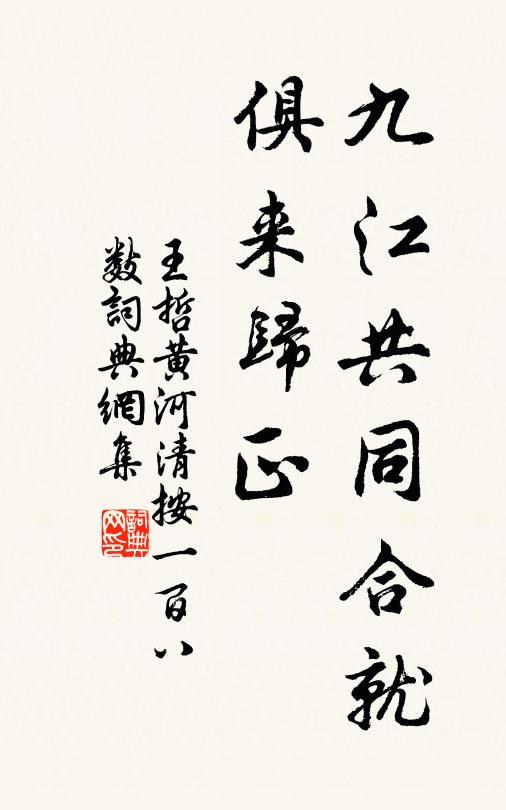 九江共同合就
俱来歸正
王哲黄河清按一百八
數詞典網集
詞典
网印